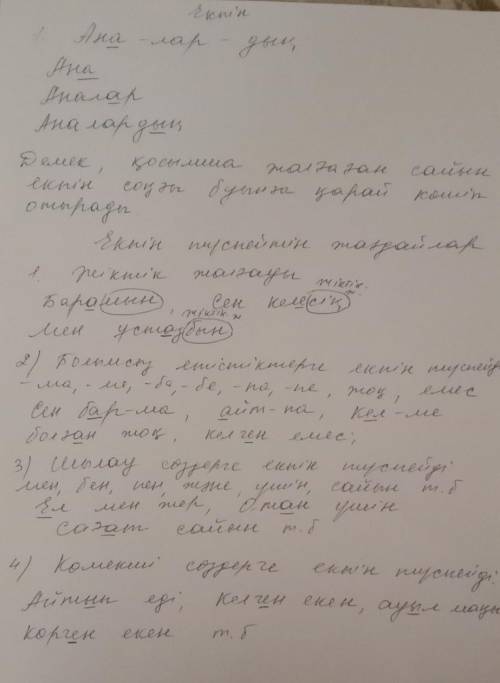 Екпін
1. Ана - лар - дың
Ана
Аналар
Аналардың
Демек, қосымша жалғаған сайын
екпін соңғы буынға қарай көшіп
отырады
Екпін түспейтін жағдайлар
1. Жіктік жалғауы
жіктік.
Барамын, Сен келесің
жіктік. ж
Мен ұстазбын
2) Болымсыз етістіктерге екпін түспейді
-ма, -ме, -ба, -бе, -па, -пе, жоқ, емес
Сен бар-ма, айт-па, кел-ме
болған жоқ, келген емес,
3) Шылау сөздерге екпін түспейді
мен, бен, пен, және, үшін, сайын т.б
Ел мен жер, Отан үшін
Сағат сайын т.б
4) Көмекші сөздерге екпін түспейді.
Айтып еді, Келген екен, ауыл маңы
Көрген екен т.б